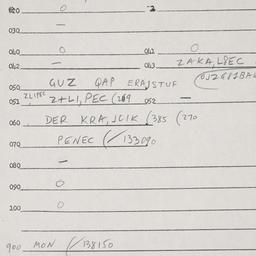 020 0 -2
030 —
040 0 041 0
042 — 043 ZAKA, LPEC
050 GUZ QAP ERAJSTUF
051 ZLIPEC Z+LI, PEC (269 052 —
060 DER KRA, JCIK (385 (270
070 PENEC (/133090
080 —
090 0
100 0
900 MON (/138150